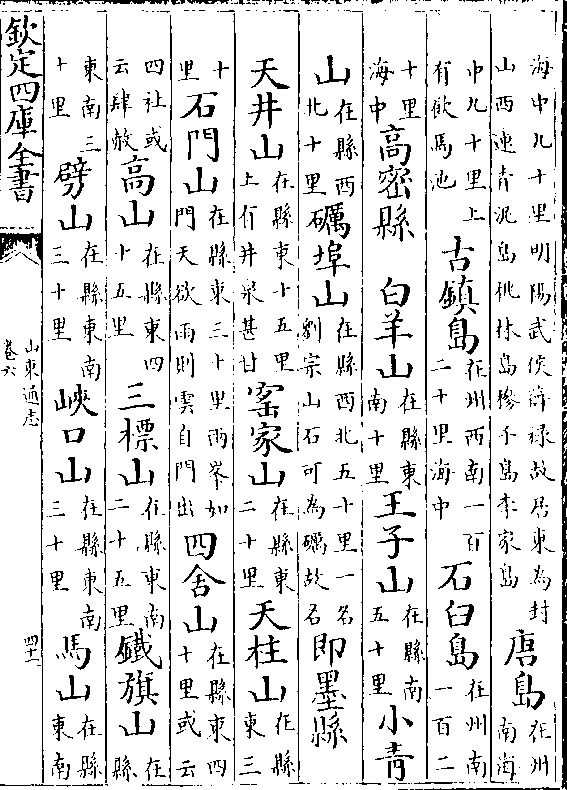 海中九十里明陽武侯薛禄故居東為封山西連青泥島桃林島摻子島李家島唐島在州南海
中九十里上有飲馬池古鎮島在州西南一百二十里海中石臼島在州南一百二
十里海中高密縣 白羊山在縣東南十里王子山在縣南五十里小青
山在縣西北十里礪埠山在縣西北五十里一名劉宗山石可為礪故名即墨縣
天井山在縣東十五里上有井泉甚甘窰家山在縣東二十里天柱山在縣東三
十里石門山在縣東三十里兩峯如門天欲雨則雲自門出四舍山在縣東四十里或云
四社或云肆赦高山在縣東四十五里三標山在縣東南二十五里鐵旗山在縣
東南三十里劈山在縣東南三十里峽口山在縣東南三十里馬山在縣東南
欽定四庫全書
山東通志
卷六
四十二